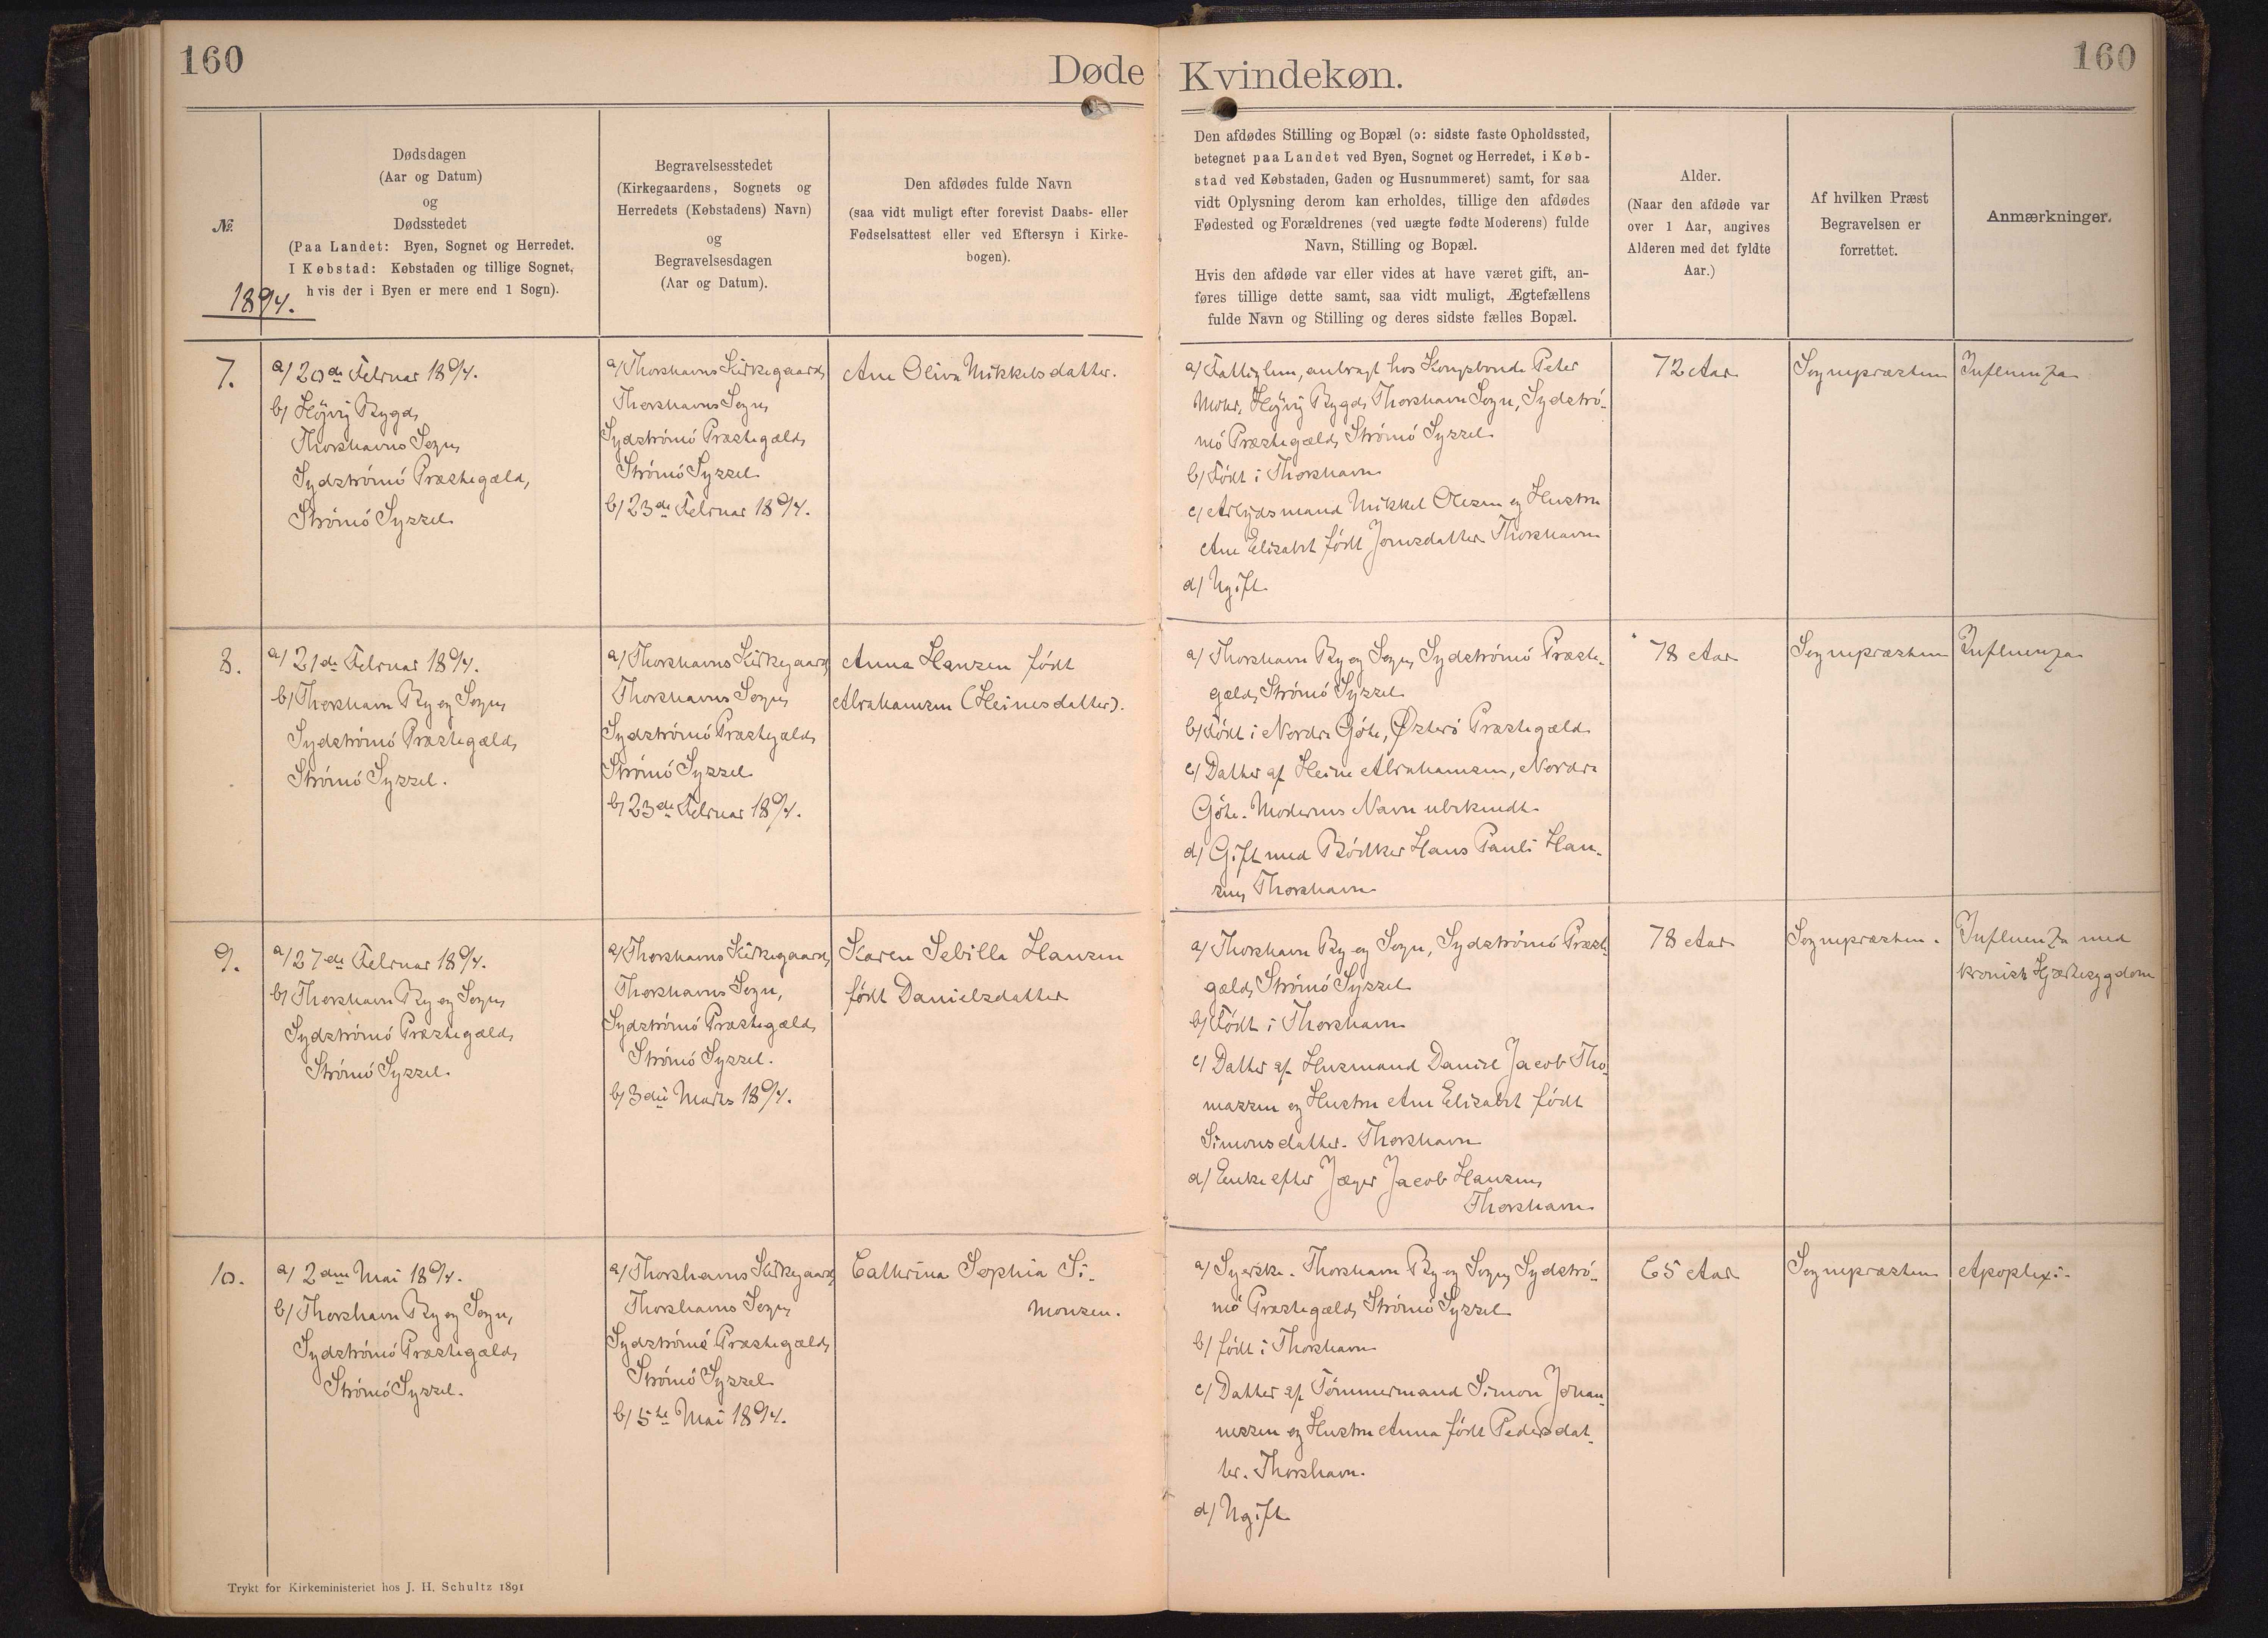 160
Døde
Kvindekøn.
160
№
1894.
Dødsdagen
(Aar og Datum)
og
Dødsstedet
(Paa Landet: Byen, Sognet og Herredet.
I Købstad: Købstaden og tillige Sognet,
hvis der i Byen er mere end 1 Sogn).
Begravelsesstedet
(Kirkegaardens, Sognets og
Herredets (Købstadens) Navn)
og
Begravelsesdagen
(Aar og Datum).
Den afdødes fulde Navn
(saa vidt muligt efter forevist Daabs- eller
Fødselsattest eller ved Eftersyn i Kirke-
bogen).
Den afdødes Stilling og Bopæl (ɔ: sidste faste Opholdssted,
betegnet paa Landet ved Byen, Sognet og Herredet, i Køb-
stad ved Købstaden, Gaden og Husnummeret) samt, for saa
vidt Oplysning derom kan erholdes, tillige den afdødes
Fødested og Forældrenes (ved uægte fødte Moderens) fulde
Navn, Stilling og Bopæl.
Hvis den afdøde var eller vides at have været gift, an-
føres tillige dette samt, saa vidt muligt, Ægtefællens
fulde Navn og Stilling og deres sidste fælles Bopæl.
Alder.
(Naar den afdøde var
over 1 Aar, angives
Alderen med det fyldte
Aar.)
Af hvilken Præst
Begravelsen er
forrettet.
Anmærkninger.
7.
a) 20de Februar 1894.
b) Højvig Bygd,
Thorshavns Sogn,
Sydstrømø Præstegæld,
Strømø Syssel
a) Thorshavns Kirkegaard,
Thorshavns Sogn,
Sydstrømø Præstegæld,
Strømø Syssel
b) 23de Februar 1894.
Ane Oliva Mikkelsdatter.
a) Fattiglem, anbragt hos Kongsbonde Peter
Mohr, Højvig Bygd, Thorshavn Sogn, Sydstrø-
mø Præstegæld, Strømø Syssel
b) Født i Thorshavn
c) Arbejdsmand Mikkel Olesen og Hustru
Ane Elisabet født Jonesdatter Thorshavn
d) Ugift
72 Aar
Sognepræsten
Influenza
8.
a) 21de Februar 1894.
b) Thorshavn By og Sogn,
Sydstrømø Præstegæld,
Strømø Syssel.
a) Thorshavns Kirkegaard,
Thorshavns Sogn,
Sydstrømø Præstegæld,
Strømø Syssel
b) 23de Februar 1894.
Anna Hansen født
Abrahamsen (Heinesdatter).
a) Thorshavn By og Sogn, Sydstrømø Præste-
gæld, Strømø Syssel
b) Født i Nordre Gøte, Østerø Præstegæld
c) Datter af Heine Abrahamsen, Nordre
Gøte. Moderens Navn ubekendt
d) Gift med Bødker Hans Pauli Han-
sen, Thorshavn
78 Aar
Sognepræsten
Influenza
9.
a) 27de Februar 1894.
b) Thorshavn By og Sogn,
Sydstrømø Præstegæld,
Strømø Syssel.
a) Thorshavns Kirkegaard,
Thorshavns Sogn,
Sydstrømø Præstegæld,
Strømø Syssel.
b) 3die Marts 1894.
Karen Sebilla Hansen
født Danielsdatter
a) Thorshavn By og Sogn, Sydstrømø Præste-
gæld, Strømø Syssel
b) Født i Thorshavn
c) Datter af Husmand Daniel Jacob Tho-
massen og Hustru Ane Elisabet født
Simonsdatter. Thorshavn
d) Enke efter Jæger Jacob Hansen,
Thorshavn
78 Aar
Sognepræsten.
Influenza med
kronisk Hjertesygdom
10.
a) 2den Mai 1894.
b) Thorshavn By og Sogn,
Sydstrømø Præstegæld,
Strømø Syssel.
a) Thorshavns Kirkegaard,
Thorshavns Sogn,
Sydstrømø Præstegæld,
Strømø Syssel
b) 5te Mai 1894.
Cathrina Sophia Si-
monsen.
a) Syerske. Thorshavn By og Sogn, Sydstrø-
mø Præstegæld, Strømø Syssel
b) født i Thorshavn
c) Datter af Tømmermand Simon Johan-
nessen og Hustru Anna født Pedersdat-
ter. Thorshavn.
d) Ugift
65 Aar
Sognepræsten
Apoplexi.
Trykt for Kirkeministeriet hos J. H. Schultz 1891